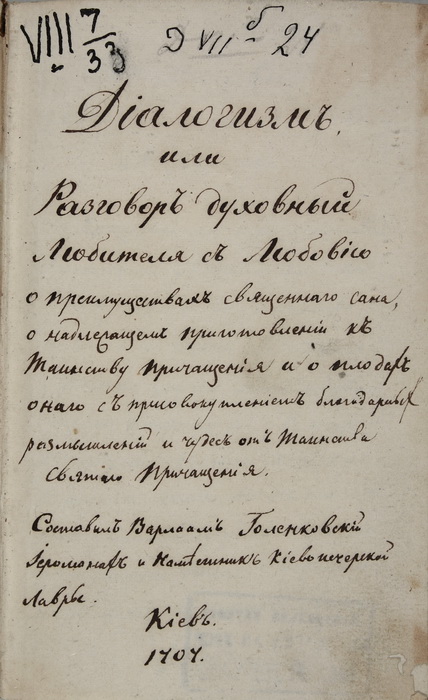 VIII 7/33 Д VII б 24
Діалогизмъ,
или
Разговоръ духовный
Любителя съ Любовію
о преимуществахъ священнаго сана,
о надлежащемъ приготовленіи къ
Таинству причащенія и о плодахъ
онаго съ присовокупленіемъ благодарныхъ
размышленій и чудесъ отъ Таинства
святаго Причащенія.
Составилъ Варлаамъ Голенковскій
Іеромонахъ и Намѣстникъ Кіевопечерской
Лавры.
Кіевъ.
1707.